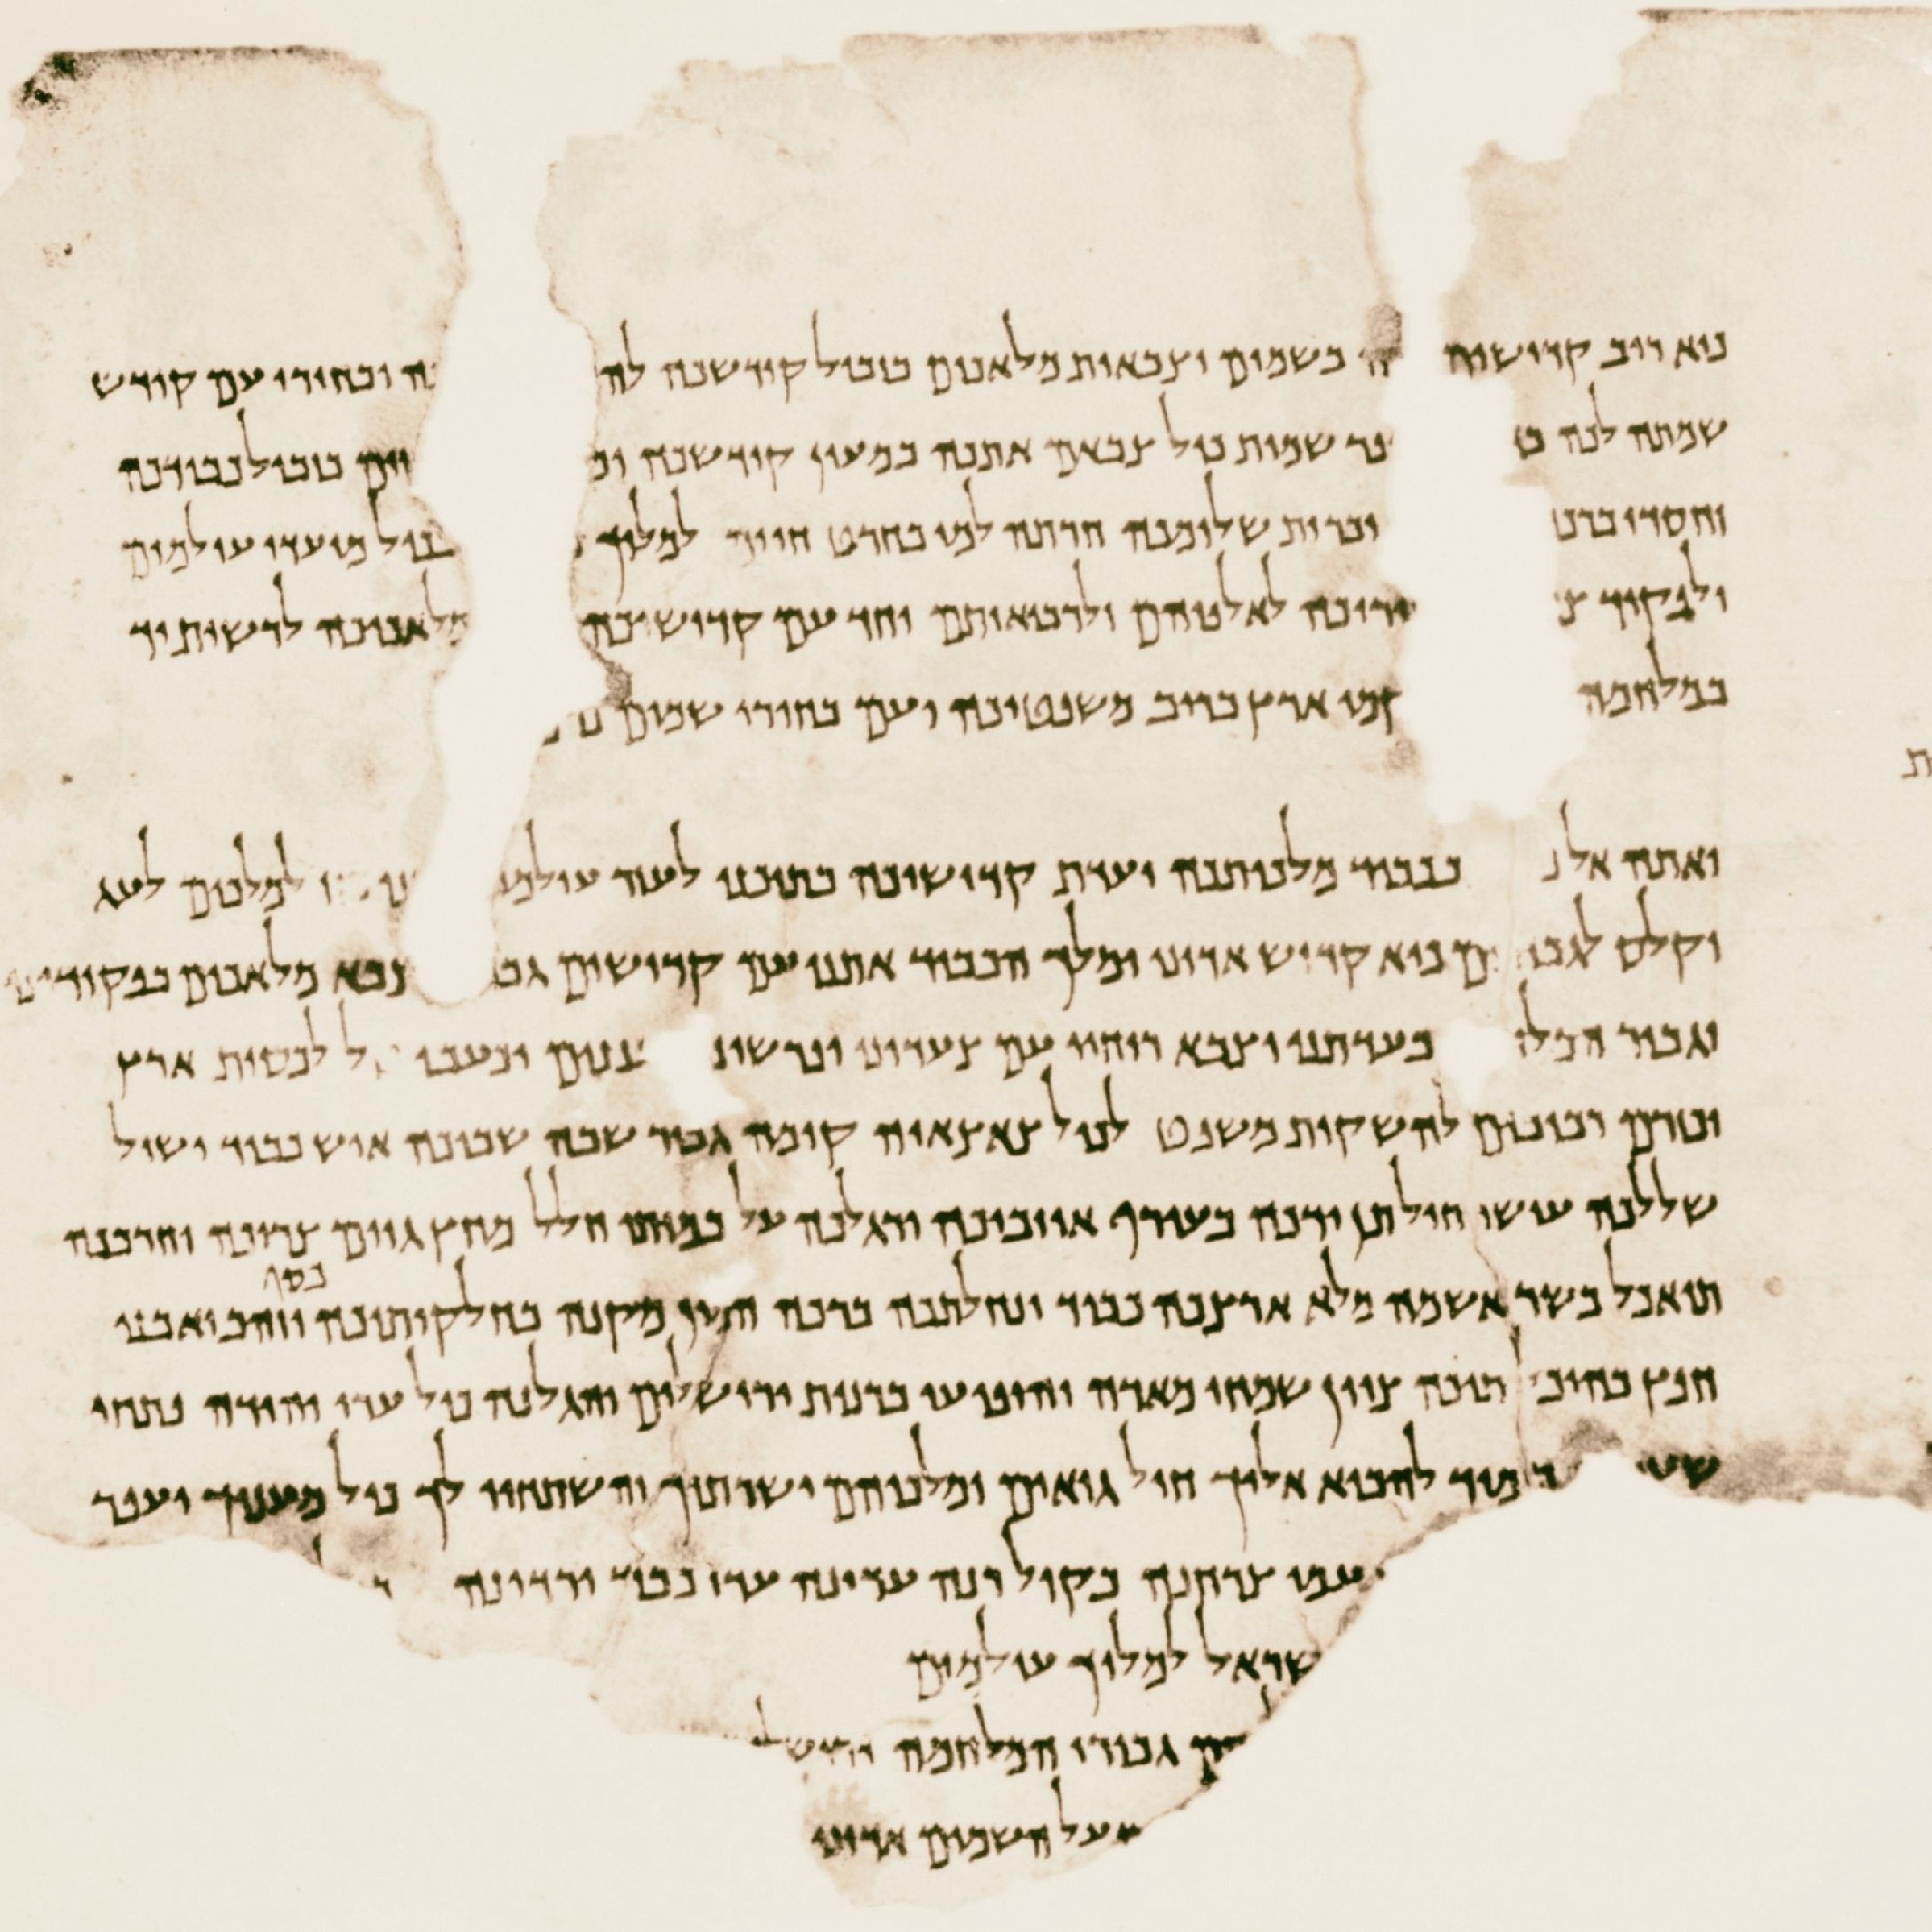 כיא רוב קדושים ה בשמים וצבאות מלאכים בזבול קודשכה לה כה ובחירי עם קודש
שמתה לכה ב פר שמות כול צבאם אתכה במעון קודשכה ומ ים בזבול כבודכה
וחסדי ברכ וברית שלומכה חרתה למו בחרט חיים למלוך בכול מועדי עולמים
ולפקוד צ יריכה לאלפיהם ולרבואותם יחד עם קדושיכה מלאכיכה לרשות יד
במלחמה קמי ארץ בריב משפטיכה ועם בחירי שמים
ת
ואתה אל נ בכבוד מלכותכה ועדת קדושיכה בתוכנו לעזר עולמי למלכים לעג
וקלס לגבורים כיא קדוש אדוני ומלך הכבוד אתנו עם קדושים גבו צבא מלאכים בפקודינו
וגבור המלח בעדתנו וצבא רוחיו עם צעדינו ופרשינו עננים וכעבי טל לכסות ארץ
וכזרם רביבים להשקות משפט לכול צאצאיה קומה גבור שבה שביכה איש כבוד ושול
שללכה עושי חיל תן ידכה בעורף אויביכה ורגלכה על במותי חלל מחץ גוים צריכה וחרבכה
כסף
תואכל בשר אשמה מלא ארצכה כבוד ונחלתכה ברכה המון מקנה בחלקותיכה וזהב ואבני
חפץ בהיכלותיכה ציון שמחי מאדה והופיעי ברנות ירושלים והגלנה כול ערי יהודה פתחי
שער מיד להביא אליך חיל גואים ומלכיהם ישרתוך והשתחוו לך כול מעניך ועפר
עמי צרחנה בקול רנה עדינה עדי כבוד ורדינה
שראל למלוך עולמים
הם גבורי המלחמה ירושל
ם על השמים אדוני